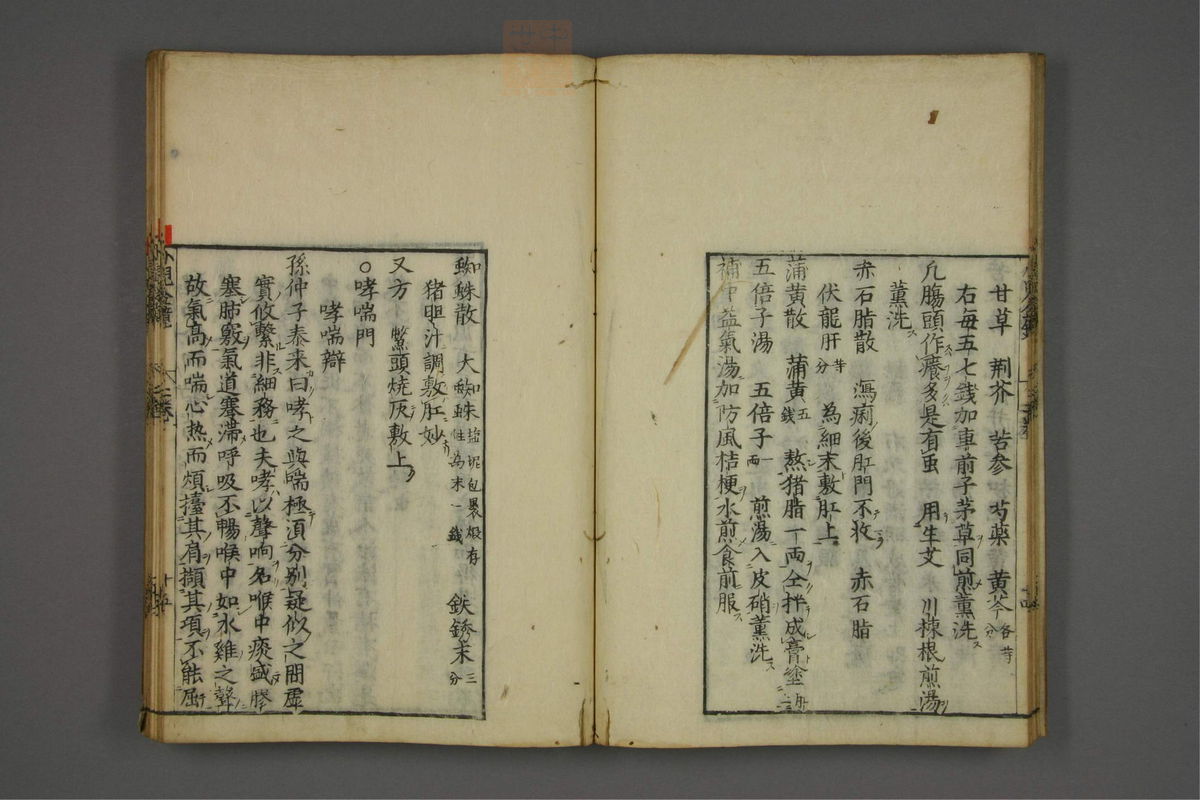 甘草　荆芥　苦参　芍藥　黄芩各等分
右毎五七銭加車前子茅草同煎薫洗ス
凢膓頭作癢多是有虫　用生艾　川楝根煎湯
薫洗ス
赤石脂散　瀉痢後肛門不收　赤石脂
伏龍肝等分　為細末敷肛上
蒲黄散　蒲黄五銭　熬猪脂一両仝拌成膏塗
五倍子湯　五倍子一両　煎湯入皮硝薫洗ス
補中益氣湯加防風桔梗水煎食前服ス
蜘蛛散　大蜘蛛塩泥包裹煅存性為末一銭　鉄銹末三分
猪胆汁調敷肛妙
又方　鱉頭燒灰敷上
○哮喘門
哮喘辯
孫仲子泰来曰哮之與喘極湏分别疑似之間虚
實攸繫非細務也夫哮以聲响名喉中痰盛膠
塞肺竅氣道蹇滞呼吸不暢喉中如水雞之聲
故氣髙而喘心热而煩擡其肩擷其項不能屈